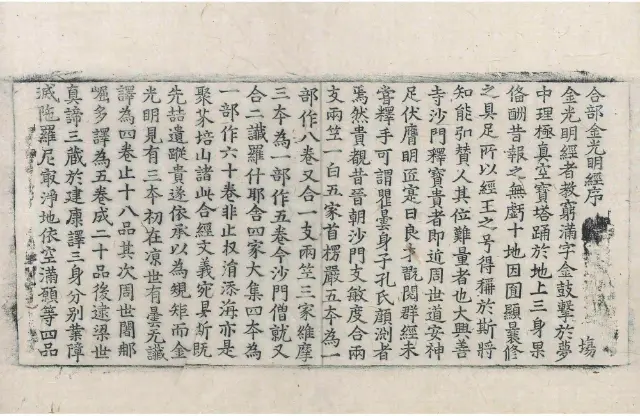 合部金光明經序
塲
金光明經者教窮滿字金鼓擊於夢
中理極真空寳塔踊於地上三身果
俻酬昔報之無虧十地因圎顯曩修
之具足所以經王之号得稱於斯將
知能弘賛人其位難量者也大興善
寺沙門釋寳貴者即近周世道安神
足伏膺明匠寔曰良才翫閱群經未
甞釋手可謂瞿曇身子孔氏顔渕者
焉然貴覩昔晉朝沙門支敏度合兩
支兩竺一白五家首楞嚴五本為一
部作八卷又合一支兩竺三家維摩
三本為一部作五卷今沙門僧就又
合二讖羅什耶舎四家大集四本為
一部作六十卷非止収涓添海亦是
聚芥培山諸此合經文義宛具斯旣
先喆遺蹤貴遂依承以為規矩而金
光明見有三本初在凉世有曇无讖
譯為四卷止十八品其次周世闍郍
崛多譯為五卷成二十品後逮梁世
真諦三蔵於建康譯三身分別業障
滅陁羅尼㝡浄地依空滿願等四品